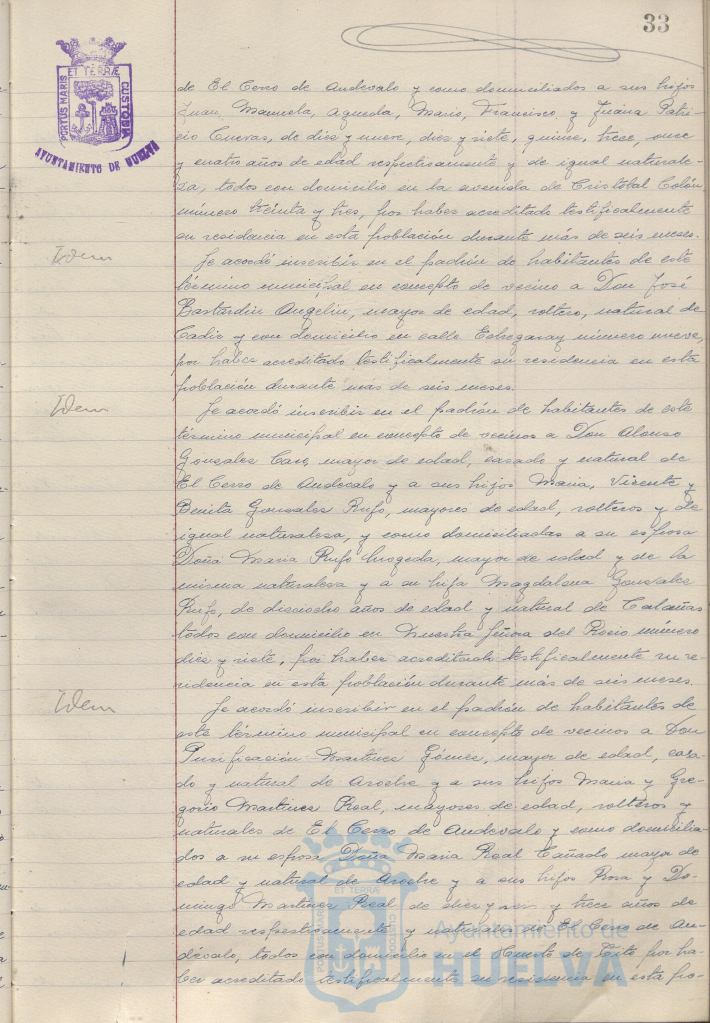 33
ET TERRÆ
PORTUS MARIS
CUSTODIA
AYUNTAMIENTO DE HUELVA
de El Cerro de Andevalo y como domiciliados a sus hijos
Juan, Manuela, Agueda, Mario, Francisco, y Juana Patri-
cio Cuevas, de diez y nueve, diez y siete, quince, trece, once
y cuatro años de edad respectivamente y de igual naturale-
za, todos con domicilio en la avenida de Cristobal Colón
número treinta y tres, por haber acreditado testificalmente
su residencia en esta población durante más de seis meses.
Idem
Se acordó inscribir en el padrón de habitantes de este
término municipal en concepto de vecino a Don José
Bastardin Angelin, mayor de edad, soltero, natural de
Cadiz y con domicilio en calle Echegaray número nueve,
por haber acreditado testificalmente su residencia en esta
población durante más de seis meses.
Idem
Se acordó inscribir en el padrón de habitantes de este
término municipal en concepto de vecinos a Don Alonso
Gonzalez Caro, mayor de edad, casado y natural de
El Cerro de Andevalo y a sus hijos Maria, Vicente y
Benita Gonzalez Rufo, mayores de edad, solteros y de
igual naturaleza, y como domiciliadas a su esposa
Doña Maria Rufo mayor de edad y de la
misma naturaleza y a su hija Magdalena Gonzalez
Rufo, de dieciocho años de edad y natural de Calañas
todos con domicilio en Nuestra Señora del Rocio número
diez y siete, por haber acreditado testificalmente su re-
sidencia en esta población durante más de seis meses.
Idem
Se acordó inscribir en el padrón de habitantes de
este término municipal en concepto de vecinos a Don
Purificación Martinez Gómez, mayor de edad, casa-
do y natural de Aroche y a sus hijos Maria y Gre-
gorio Martinez Real, mayores de edad, solteros y
naturales de El Cerro de Andevalo y como domicilia-
dos a su esposa Doña Maria Real Cañado mayor de
edad y natural de Aroche y a sus hijos Rosa y Do-
mingo Martinez Real de diez y seis y trece años de
edad respectivamente y naturales de El Cerro de An-
dévalo, todos con domicilio en el Huerto de por ha-
ber acreditado testificalmente su residencia en esta po-
ET TERRÆ
PORTUS MARIS
CUSTODIA
Ayuntamiento de
HUELVA